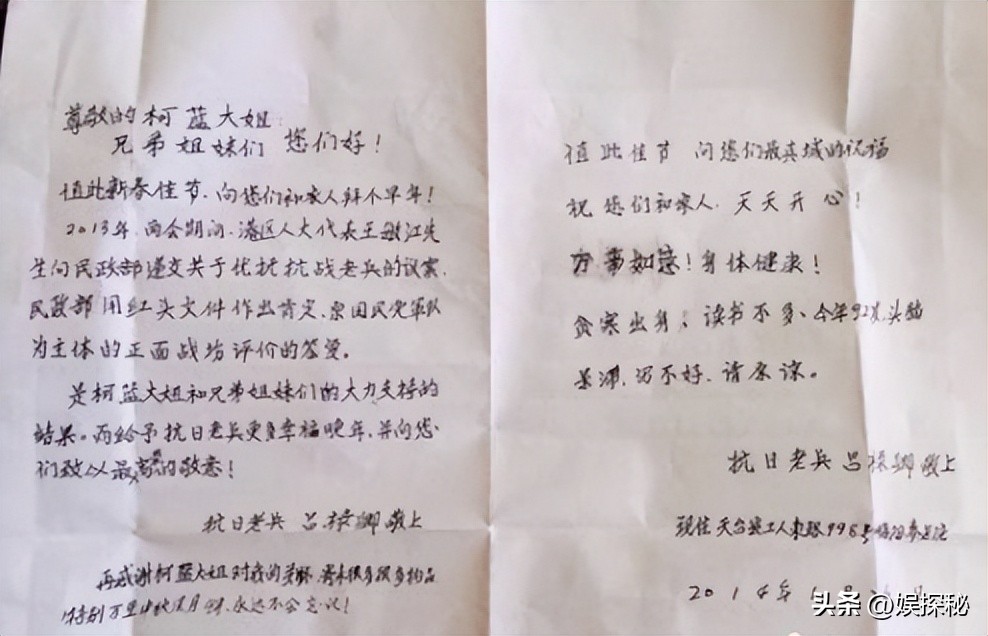 尊敬的柯蓝大姐:
兄弟姐妹们 您们好!
值此新春佳节、向您们和家人拜个早年!
2013年,两会期间,港区人大代表王敏江先
生向民政部递交关于优抚抗战老兵的议案,
民政部用红头文件作出肯定、原国民党军队
为主体的正面战场评价的答复。
是柯蓝大姐和兄弟姐妹们的大力支持的
结果。而给予抗日老兵更多幸福晚年,并向您
们致以最高的敬意!
抗日老兵 吕 敬上
再感谢柯蓝大姐对我的关怀、寄来很多很多物品
特别 永远不会忘记!
值此佳节 向您们最真城的祝福
祝您们和家人、天天开心!
万事如意!身体健康!
贫寒出身、读书不多、今年92岁,头脑
写不好,请原谅。
抗日老兵 吕 敬上
现住天台县工人东路998号
2014年 月 日
头条 @娱探秘